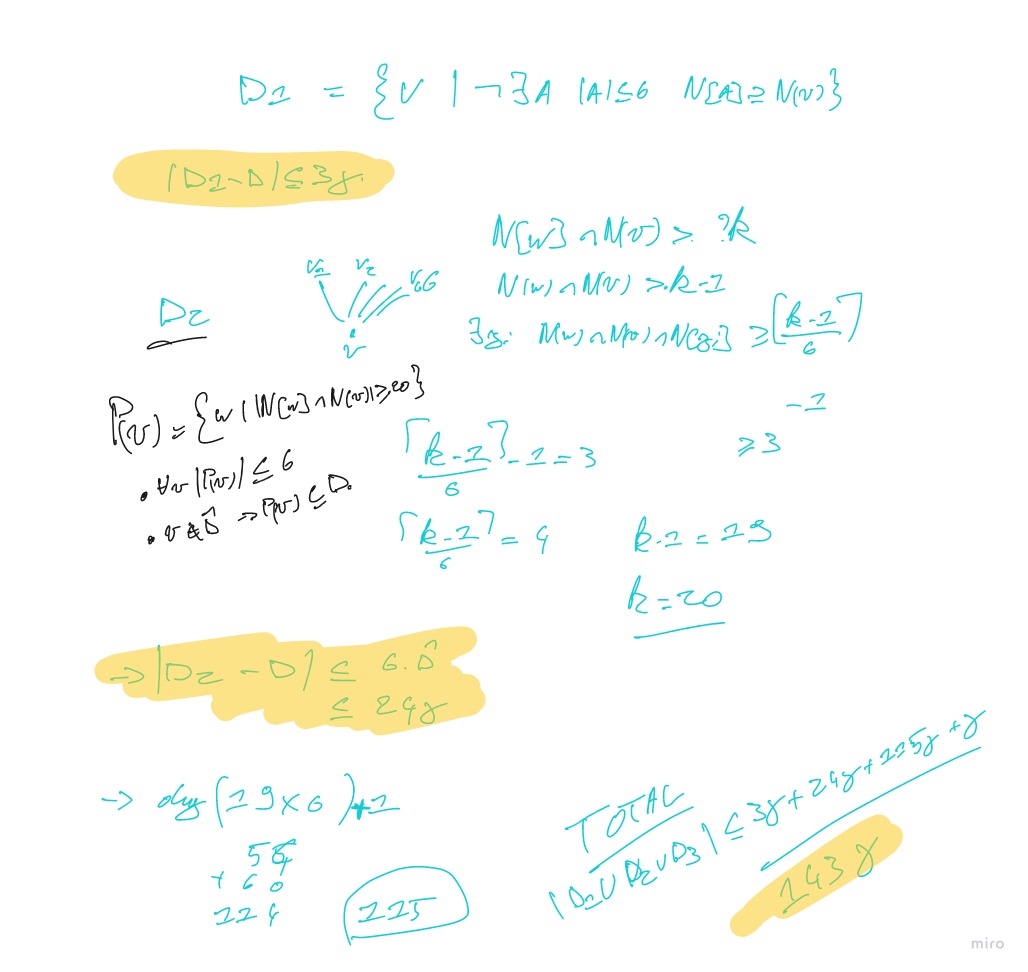 D1 = {v | ¬∃A |A|≤6 N[A]⊇N(v)}
|D1-D|≤3γ
N[w]∩N(v) ≥ ?k
N(w)∩N(v) ≥ k-1
∃gi N(w)∩N(v)∩N[gi] ≥ ⌈k-1/6⌉
-1
≥3
D2
v1 v2
v
P(v) = {w | |N[w]∩N(v)|≥20}
• ∀v |P(v)| ≤ 6
• v∉D̂ ⇒ P(v) ⊆ D.
⌈k-1/6⌉-1=3
⌈k-1/6⌉ = 4
k-1 = 19
k=20
→ |D2 - D| ≤ 6.D̂
≤ 24γ
→ deg (19×6)+1
54
+ 60
114
115
TOTAL
|D1∪D2∪D3| ≤ 3γ+24γ+115γ+γ
143γ
miro